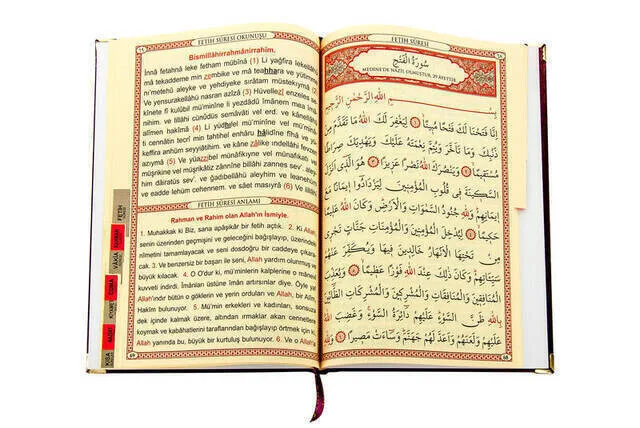 FETİH SÛRESİ OKUNUŞU
Bismillâhirrahmânirrahîm.
İnnâ fetahnâ leke fetham mubînâ (1) Li yağfira lekellâhu
mâ tekaddeme min zembike ve mâ teahhara ve yütimme
ni'metehû aleyke ve yehdiyeke sırâtam müstekıymâ (2)
Ve yensurakellâhü nasran azîzâ (3) Hüvellezî enzeles se
kînete fî kulûbil mü'minîne li yezdâdû îmânem mea îmâ
nihim. ve lillâhi cünûdüs semâvâti vel erd. ve kânellâhü
alîmen hakîmâ (4) Li yüdhılel mü'minîne vel mü'minâti
cennâtin tecrî min tahtihel enhâru hâlidîne fîhâ ve yü
keffira anhüm seyyiâtihim. ve kâne zâlike indellâhi fevzen
azıymâ (5) Ve yüazzibel münâfikıyne vel münâfikâti vel
müşrikîne vel müşrikâtiz zânnîne billâhi zannes sev'. aley
him dâiratüs sev'. ve ğadıbellâhü aleyhim ve leanehüm
ve eadde lehüm cehennem. ve sâet masıyrâ (6) Ve lillâhi
FETİH SÛRESİ ANLAMI
Rahman ve Rahim olan Allah'ın İsmiyle.
1. Muhakkak ki Biz, sana apaşikâr bir fetih açtık. 2. Ki Allah
senin üzerinden geçmişini ve geleceğini bağışlayıp, üzerindeki
nîmetini tamamlayacak ve seni dosdoğru bir caddeye çıkara
cak. 3. Ve benzersiz bir başarı ile seni, Allah yardım olunmuş ve
büyük kılacak. 4. O O'dur ki, mü'minlerin kalplerine o mânevî
kuvveti indirdi. İmânları üstünde îmân artırsınlar diye. Öyle ya
Allah'ındır bütün o göklerin ve yerin orduları ve Allah, bir Alîm,
Hakîm bulunuyor. 5. Mü'min erkekleri ve kadınları, sonsuza
dek içinde kalmak üzere, altından ırmaklar akan cennetlere
koymak ve kabahatlerini taraflarından bağışlayıp örtmek için ki,
Allah yanında bu, büyük bir kurtuluş bulunuyor. 6. Ve o Allah'a
69
FETİH
VÂKIA
KISA
FETİH SÛRESİ
سُورَةُ الْفَتْحِ
MEDİNE'DE NÂZİL OLMUŞTUR, 29 ÂYETTİR
بِسْمِ اللهِ الرَّحْمٰنِ الرَّحِيمِ
اِنَّا فَتَحْنَا لَكَ فَتْحًا مُبِينًا ﴿١﴾ لِيَغْفِرَ لَكَ اللهُ مَا تَقَدَّمَ مِنْ
ذَنْبِكَ وَمَا تَاَخَّرَ وَيُتِمَّ نِعْمَتَهُ عَلَيْكَ وَيَهْدِيَكَ صِرَاطًا
مُسْتَقِيمًا ﴿٢﴾ وَيَنْصُرَكَ اللهُ نَصْرًا عَزِيزًا ﴿٣﴾ هُوَ الَّذِى اَنْزَلَ
السَّكِينَةَ فِى قُلُوبِ الْمُؤْمِنِينَ لِيَزْدَادُوا اِيمَانًا مَعَ
اِيمَانِهِمْ وَلِلّٰهِ جُنُودُ السَّمٰوَاتِ وَالْاَرْضِ وَكَانَ اللهُ عَلِيمًا
حَكِيمًا ﴿٤﴾ لِيُدْخِلَ الْمُؤْمِنِينَ وَالْمُؤْمِنَاتِ جَنَّاتٍ تَجْرِى
مِنْ تَحْتِهَا الْاَنْهَارُ خَالِدِينَ فِيهَا وَيُكَفِّرَ عَنْهُمْ
سَيِّئَاتِهِمْ وَكَانَ ذٰلِكَ عِنْدَ اللهِ فَوْزًا عَظِيمًا ﴿٥﴾ وَيُعَذِّبَ
الْمُنَافِقِينَ وَالْمُنَافِقَاتِ وَالْمُشْرِكِينَ وَالْمُشْرِكَاتِ الظَّانِّينَ
بِاللهِ ظَنَّ السَّوْءِ عَلَيْهِمْ دَائِرَةُ السَّوْءِ وَغَضِبَ اللهُ
عَلَيْهِمْ وَلَعَنَهُمْ وَاَعَدَّ لَهُمْ جَهَنَّمَ وَسَاءَتْ مَصِيرًا ﴿٦﴾ وَلِلّٰهِ
68